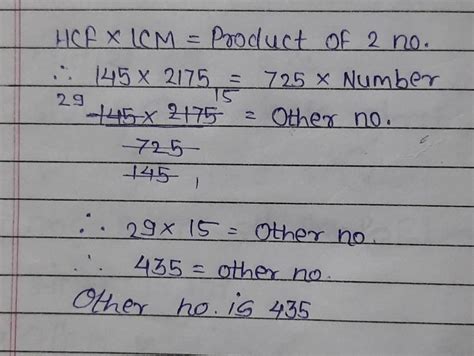 HCF × LCM = Product of 2 no.
∴ 145 × 2175 = 725 × Number
29 15
145 × 2175 = Other no.
725
145
∴ 29 × 15 = Other no.
∴ 435 = other no.
Other no. is 435